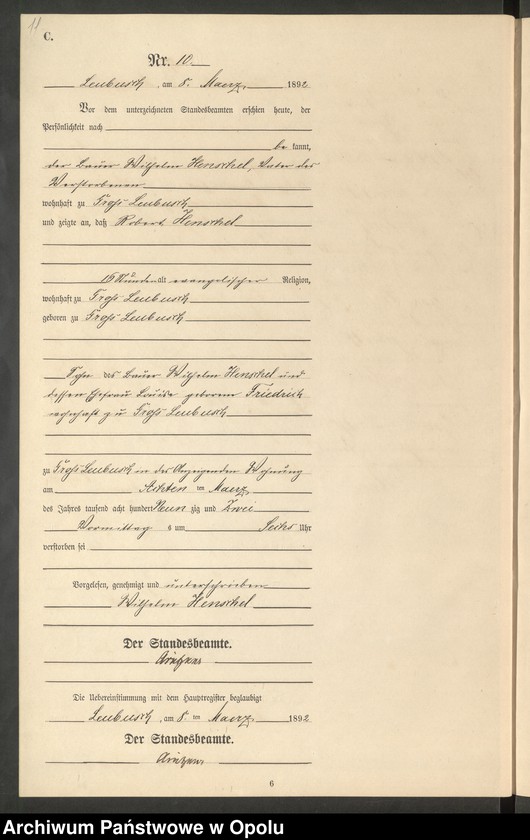 11
C.
Nr. 10.
Leubusch, am 8. Maerz 1892
Vor dem unterzeichneten Standesbeamten erschien heute, der
Persönlichkeit nach
be kannt,
der Bauer Wilhelm Henschel, Vater des
Verstorbenen
wohnhaft zu Groß Leubusch
und zeigte an, daß Robert Henschel
16 Stunden alt evangelischer Religion,
wohnhaft zu Groß Leubusch
geboren zu Groß Leubusch
Sohn des Bauer Wilhelm Henschel und
dessen Ehefrau Louise geborene Friedrich
wohnhaft zu Groß Leubusch
zu Groß Leubusch in des Anzeigenden Wohnung
am Achten ten Maerz
des Jahres tausend acht hundert Neun zig und Zwei
Vormittag s um Sechs Uhr
verstorben sei
Vorgelesen, genehmigt und unterschrieben
Wilhelm Henschel
Der Standesbeamte.
Die Uebereinstimmung mit dem Hauptregister beglaubigt
Leubusch, am 8. ten Maerz 1892
Der Standesbeamte.
6
Archiwum Państwowe w Opolu